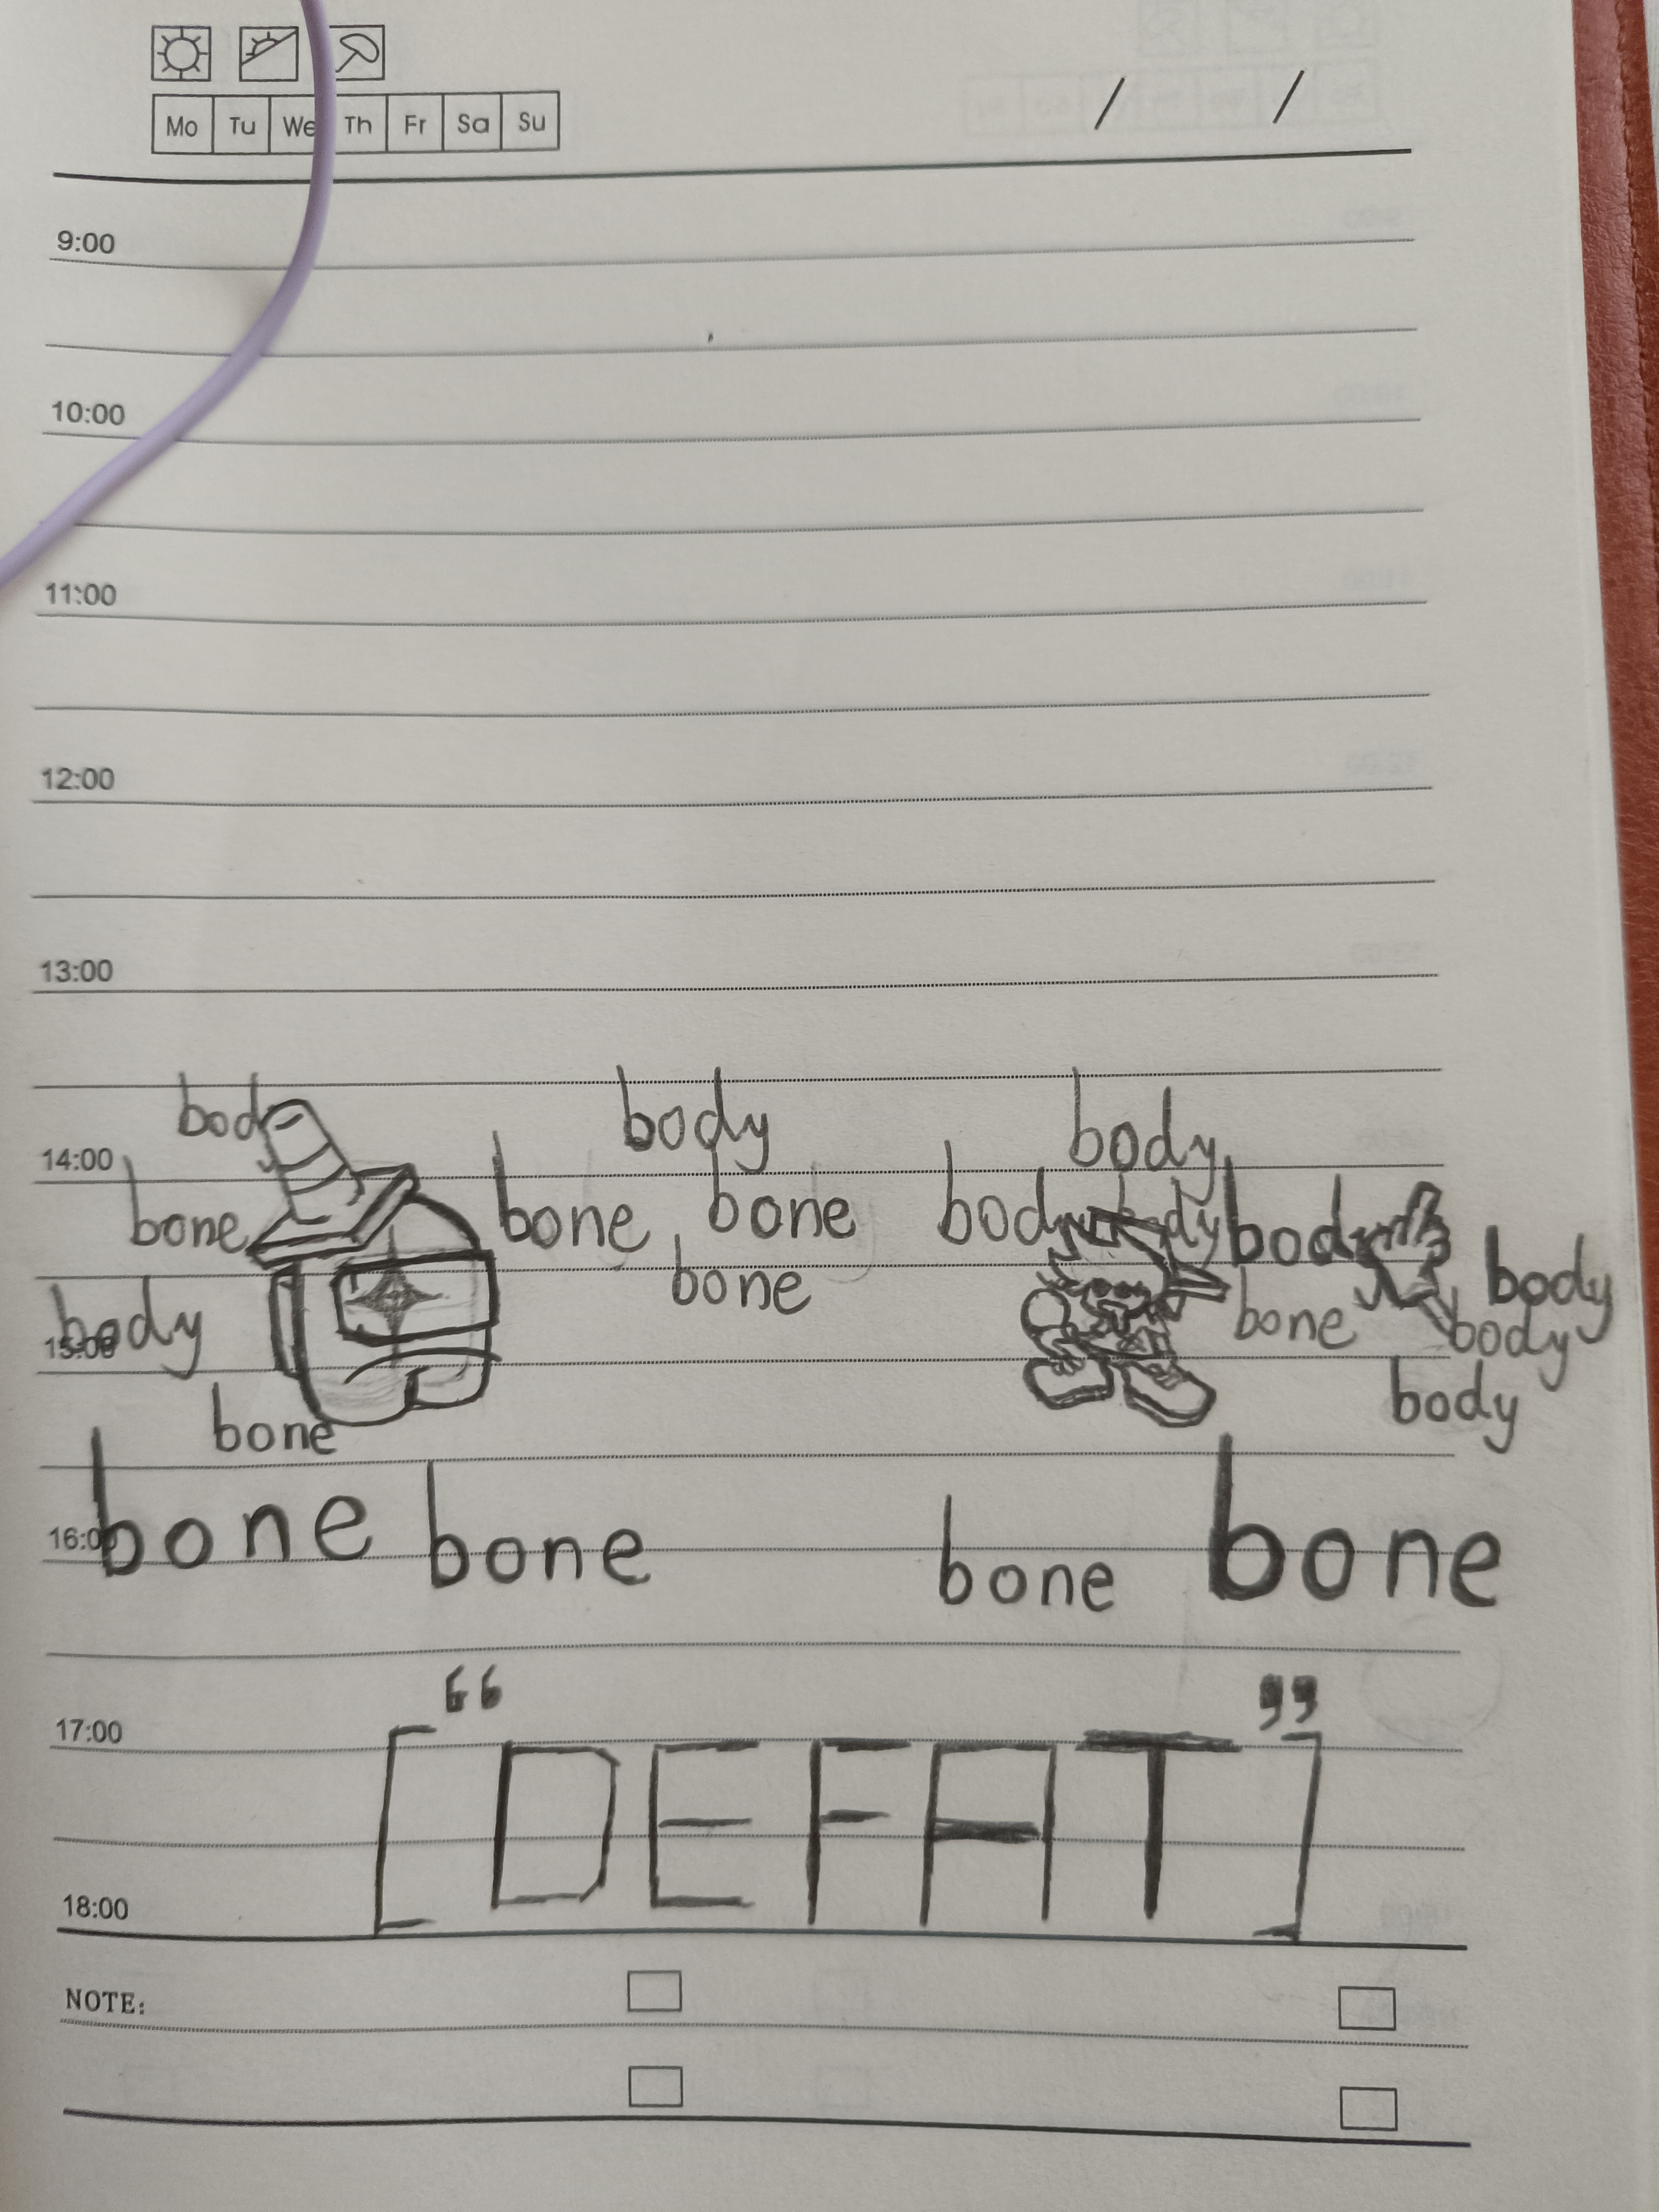 Mo Tu We Th Fr Sa Su / /
9:00
10:00
11:00
12:00
13:00
bod body body
14:00
bone bone bone body body
bone bone body
body body
15:00
body
bone
16:00 bone bone bone bone
17:00
[ “ DEFAT ” ]
18:00
NOTE: